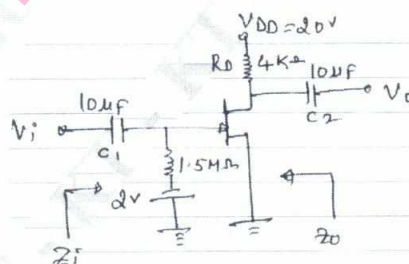 VDD=20V
RD 4KΩ
10μf
Vo
C2
10μf
Vi
C1
1.5MΩ
2V
Zi
Zo